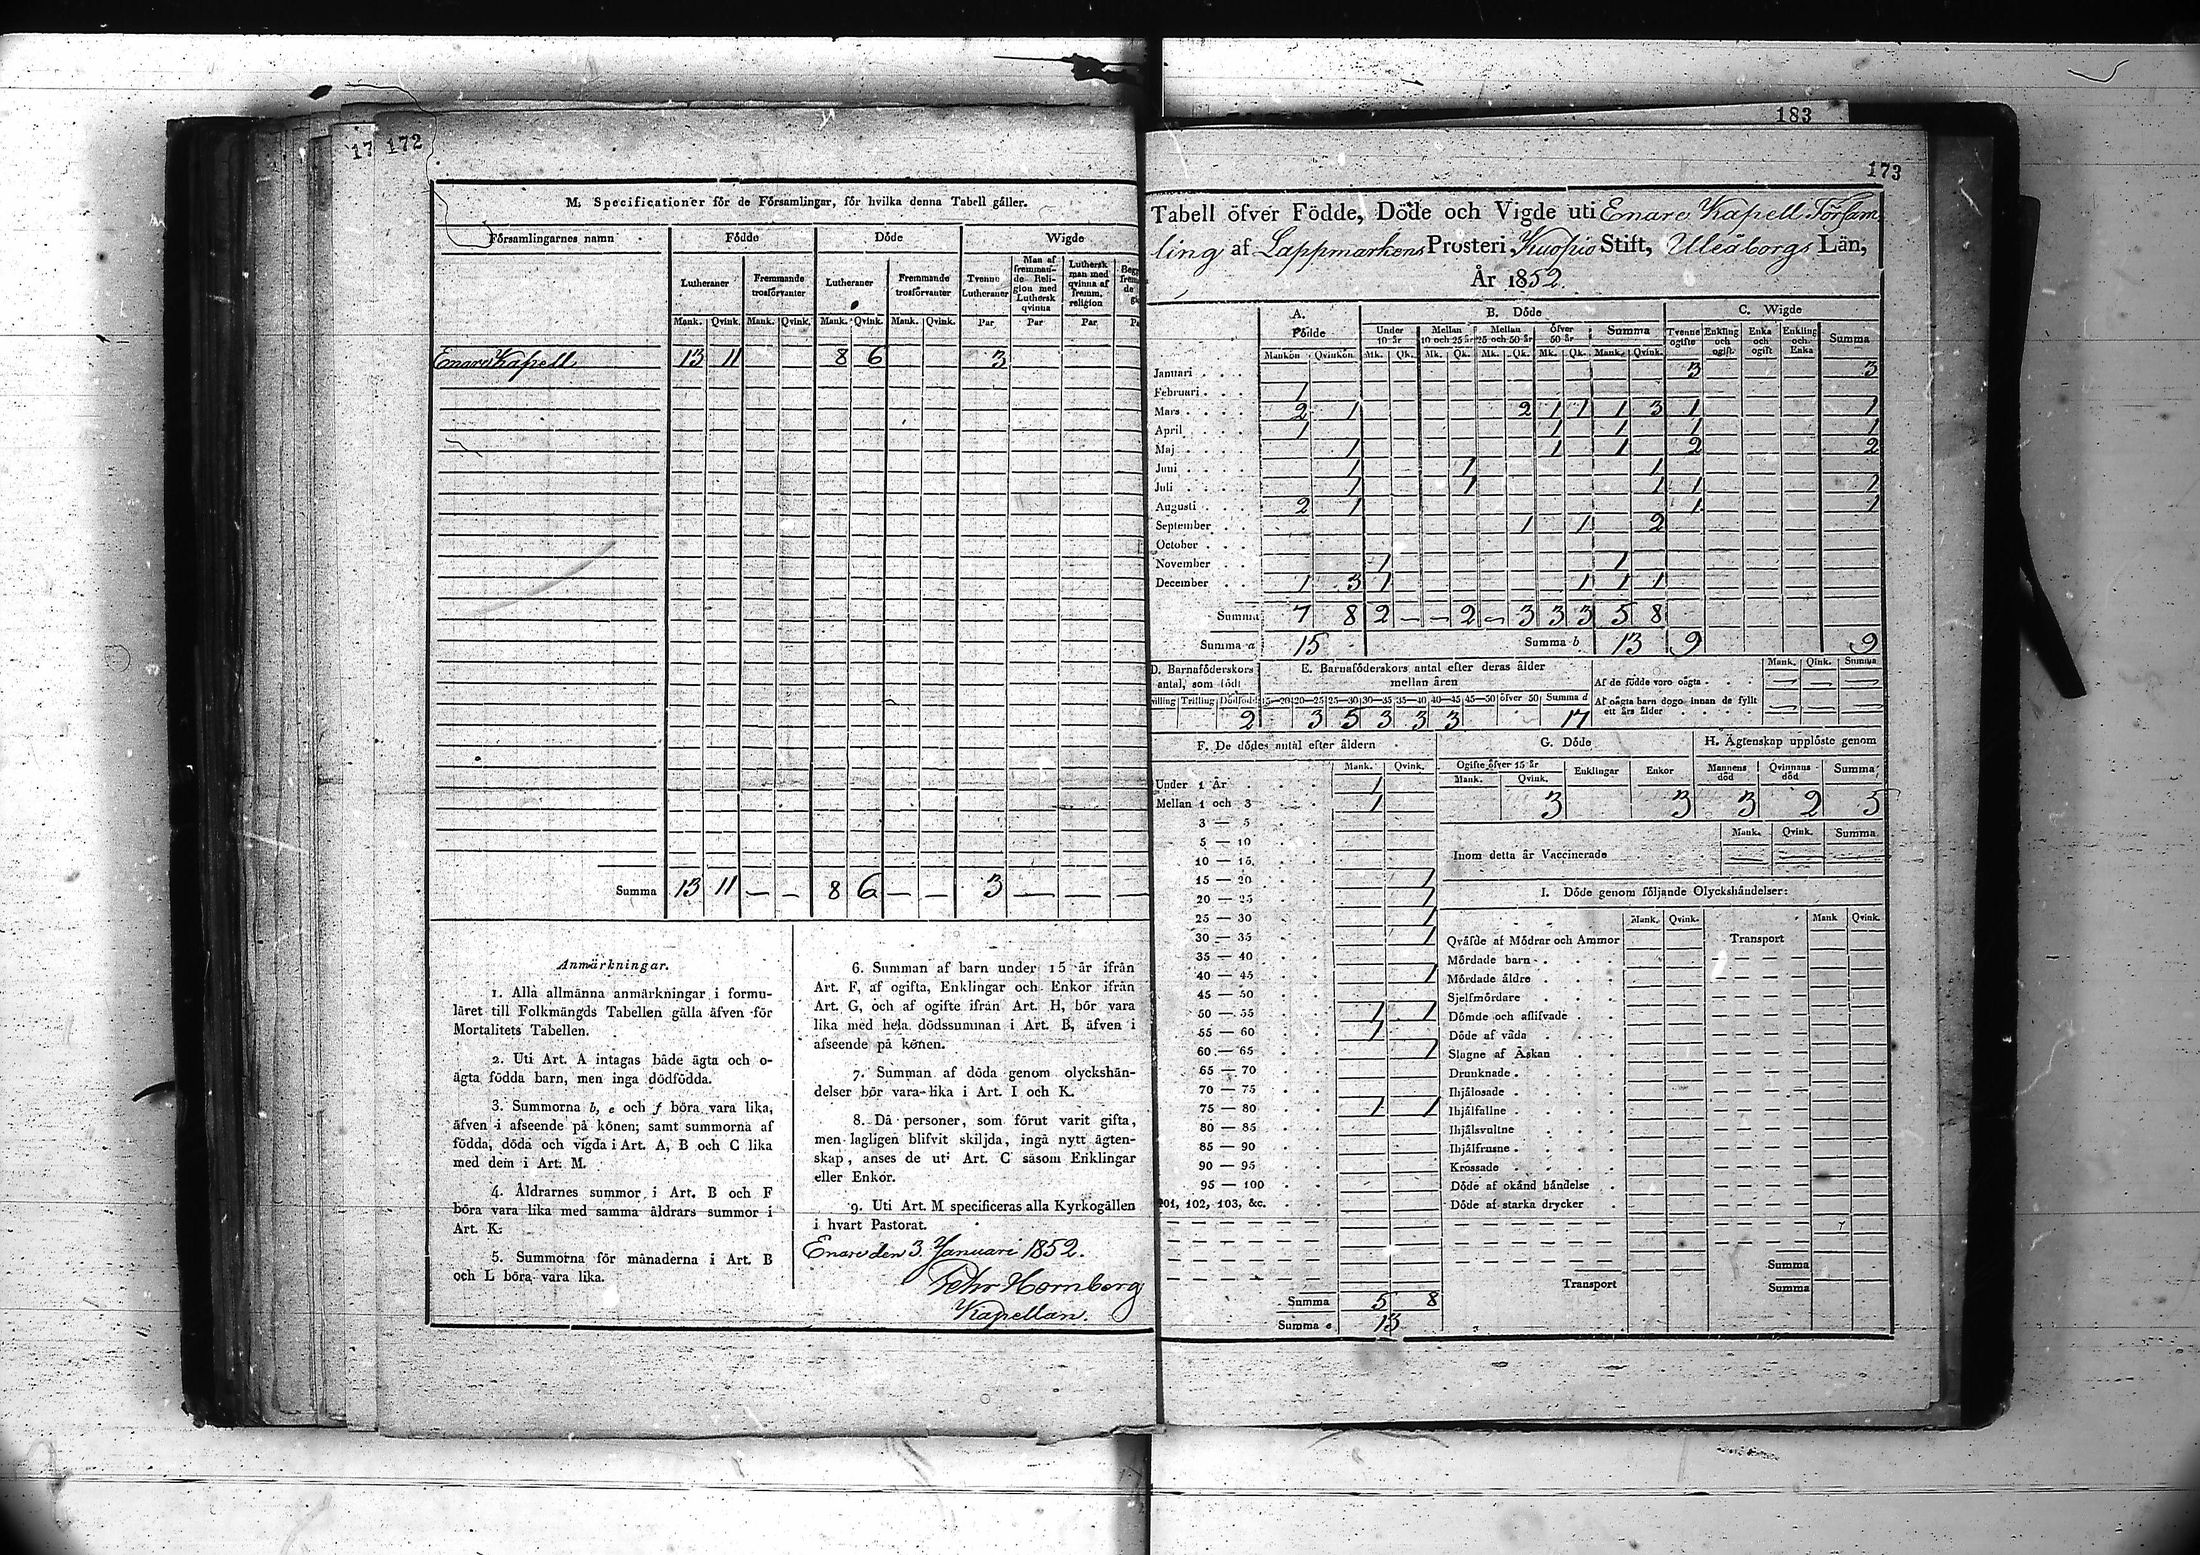 17 172
M. Specificationer för de Församlingar, för hvilka denna Tabell gäller.
Församlingarnes namn Födde Döde Wigde
Lutheraner Fremmande trosförvanter Lutheraner Fremmande trosförvanter Tvenne Lutheraner Man af fremmande Religion med Luthersk qvinna Luthersk man med qvinna af fremm. religion
Mank. Qvink. Mank. Qvink. Mank. Qvink. Mank. Qvink. Par Par Par
Enare Kapell 13 11 8 6 3
Summa 13 11 — — 8 6 — — 3 — — —
Anmärkningar.
1. Alla allmänna anmärkningar i formu-
läret till Folkmängds Tabellen gälla äfven för
Mortalitets Tabellen.
2. Uti Art. A intagas både ägta och o-
ägta födda barn, men inga dödfödda.
3. Summorna b, e och f böra vara lika,
äfven i afseende på könen; samt summorna af
födda, döda och vigda i Art. A, B och C lika
med dem i Art. M.
4. Åldrarnes summor i Art. B och F
böra vara lika med samma åldrars summor i
Art. K.
5. Summorna för månaderna i Art. B
och L böra vara lika.
6. Summan af barn under 15 år ifrån
Art. F, af ogifta, Enklingar och Enkor ifrån
Art. G, och af ogifte ifrån Art. H, bör vara
lika med hela dödssumman i Art. B, äfven i
afseende på könen.
7. Summan af döda genom olyckshän-
delser bör vara lika i Art. I och K.
8. Då personer, som förut varit gifta,
men lagligen blifvit skiljda, ingå nytt ägten-
skap, anses de uti Art. C såsom Enklingar
eller Enkor.
9. Uti Art. M specificeras alla Kyrkogällen
i hvart Pastorat.
Enare den 3. Januari 1852.
Pehr Hornborg
Kapellan.
183
173
Tabell öfver Födde, Döde och Vigde uti Enare Kapell Försam
ling af Lappmarkens Prosteri, Kuopio Stift, Uleåborgs Län,
År 1852.
A. Födde B. Döde C. Wigde
Under 10 år Mellan 10 och 25 år Mellan 25 och 50 år öfver 50 år Summa Tvenne ogifte Enkling och ogift Enka och ogift Enkling och Enka Summa
Mankön Qvinkön Mk. Qk. Mk. Qk. Mk. Qk. Mk. Qk. Mank. Qvink.
Januari 3 3
Februari 1
Mars 2 1 2 1 1 1 3 1 1
April 1 1 1 1 1
Maj 1 1 1 2 2
Juni 1 1 1
Juli 1 1 1 1 1
Augusti 2 1 1 1
September 1 1 2
October
November 1 1
December 1 3 1 1 1 1
Summa 7 8 2 — — 2 — 3 3 3 5 8
Summa a 15 Summa b 13 9 9
D. Barnaföderskors antal, som födt E. Barnaföderskors antal efter deras ålder mellan åren Mank. Qink. Summa
Af de födde voro oägta — — —
villing Trilling Dödfödd 15—20 20—25 25—30 30—35 35—40 40—45 45—50 öfver 50 Summa d Af oägta barn dogo innan de fyllt ett års ålder — — —
2 3 5 3 3 3 17
F. De dödes antal efter åldern G. Döde H. Ägtenskap upplöste genom
Mank. Qvink. Ogifte öfver 15 år Enklingar Enkor Mannens död Qvinnans död Summa
Mank. Qvink.
3 3 3 2 5
Under 1 År 1
Mellan 1 och 3 1
3 — 5
5 — 10
10 — 15
15 — 20 1
20 — 25 1
25 — 30 1
30 — 35 1
35 — 40
40 — 45 1
45 — 50
50 — 55 1 1
55 — 60 1
60 — 65 1
65 — 70
70 — 75
75 — 80 1 1
80 — 85
85 — 90
90 — 95
95 — 100
101, 102, 103, &c.
Summa 5 8
Summa e 13
Mank. Qvink. Summa
Inom detta år Vaccinerade — — —
I. Döde genom följande Olyckshändelser:
Mank. Qvink. Mank Qvink.
Qväfde af Mödrar och Ammor Transport
Mördade barn
Mördade äldre
Sjelfmördare
Dömde och aflifvade
Döde af våda
Slagne af Åskan
Drunknade
Ihjälosade
Ihjälfallne
Ihjälsvultne
Ihjälfrusne
Krossade
Döde af okänd händelse
Döde af starka drycker
Summa
Transport Summa